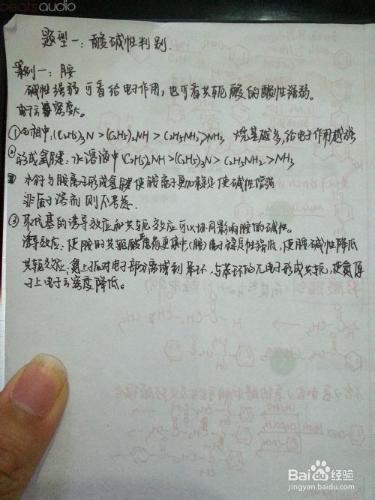 beatsaudio
题型一：酸碱性判别.
案例一：胺
碱性强弱可看给电子作用，也可看共轭酸的酸性强弱。
电子云密度大。
①气相中,(C2H5)3N > (C2H5)2NH > C2H5NH2 > NH3 烷基越多,给电子作用越强
②形成氢键：水溶液中(C2H5)2NH > (C2H5)3N > C2H5NH2 > NH3
水可与胺离子形成氢键使胺离子更加稳定使碱性增强
非质子溶剂则不考虑.
③取代基的诱导效应和共轭效应可以协同影响胺的碱性。
诱导效应：使胺的共轭酸离子稳定性降低，使胺碱性降低
共轭效应：氮上孤对电子部分离域到苯环，与苯环的π电子形成共轭，使氮原
子上电子云密度降低。
Baidu经验
jingyan.baidu.com